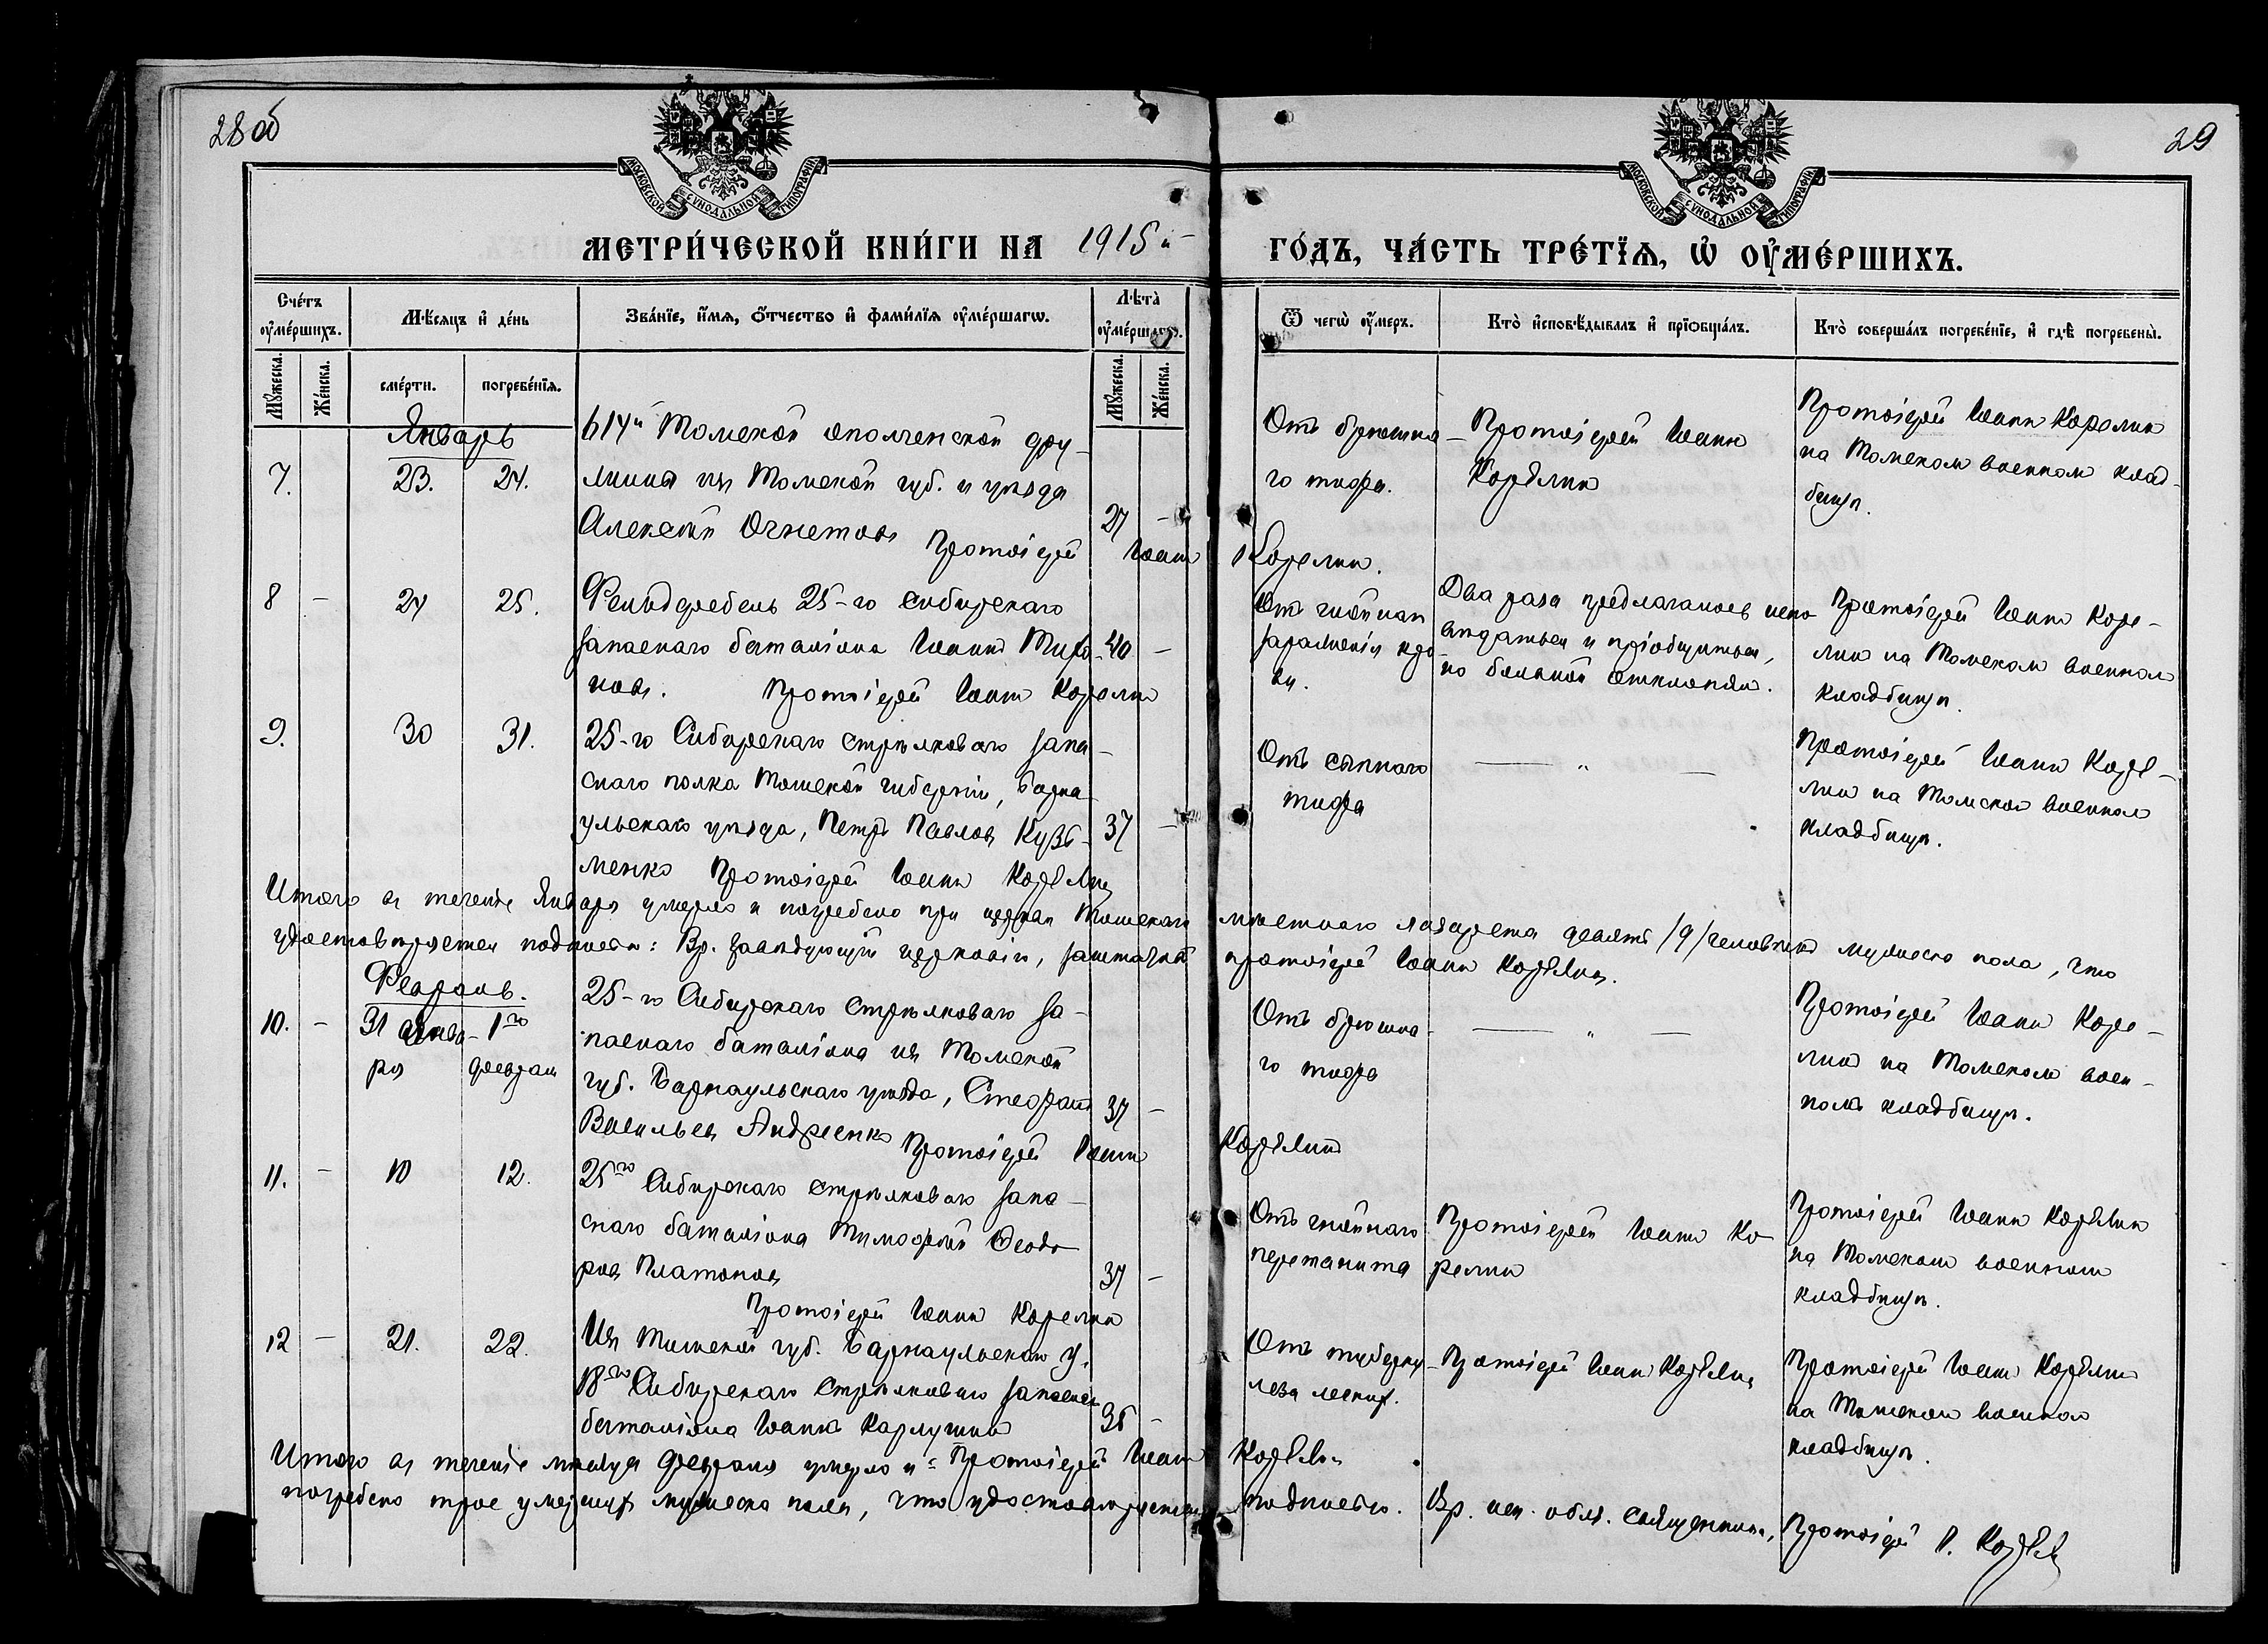 28 об
29
МОСКОВСКОЙ СѴНОДАЛЬНОЙ ТИПОГРАФІИ
МОСКОВСКОЙ СѴНОДАЛЬНОЙ ТИПОГРАФІИ
МЕТРИ́ЧЕСКОЙ КНИ́ГИ НА 1915 й
ГО́ДЪ, ЧА́СТЬ ТРЕ́ТЇѦ, Ѡ҆ ОУ҆МЕ́РШИХЪ.
Сче́тъ оу҆ме́ршихъ.
Мѣ́сяцъ и҆ де́нь
Зва́нїе, и҆́мѧ, ѻ҆́тчество и҆ фами́лїѧ оу҆ме́ршагѡ.
Лѣта̀ оу҆ме́ршагѡ.
Ѿ чегѡ̀ оу҆́меръ.
Кто̀ и҆сповѣ́дывалъ и҆ прїѡбща́лъ.
Кто̀ соверша́лъ погребе́нїе, и҆ гдѣ̀ погребены̀.
Мꙋ́жеска. Же́нска.
сме́рти. погребе́нїѧ.
Мꙋ́жеска. Же́нска.
Январь
7. 23. 24.
614й Томской ополченской дру-
жины изъ Томской губ. и уѣзда
Алексѣй Огнетовъ 27 -
Протоіерей Іоаннъ Корелинъ.
Отъ брюшна-
го тифа.
Протоіерей Іоаннъ
Корелинъ
Протоіерей Іоаннъ Корелинъ
на Томскомъ военномъ клад-
бищѣ.
8 - 24 25.
Фельдфебель 25-го Сибирскаго
запаснаго баталіона Іоаннъ Миро- 40 -
новъ. Протоіерей Іоаннъ Корелинъ
Отъ гнойнаго
зараженія кро-
ви.
Два раза предлагалось испо-
вѣдаться и пріобщиться,
но больной отклонялъ.
Протоіерей Іоаннъ Коре-
линъ на Томскомъ военномъ
кладбищѣ.
9. 30 31.
25-го Сибирскаго стрѣлковаго запа-
снаго полка Томской губерніи, Барна-
ульскаго уѣзда, Петръ Павловъ Кузь- 37 -
менко Протоіерей Іоаннъ Корелинъ
Отъ сыпнаго
тифа
— „ —
Протоіерей Іоаннъ Коре-
линъ на Томскомъ военномъ
кладбищѣ.
Итого въ теченіе Января умерло и погребено при церкви Томскаго мѣстнаго лазарета девять /9/ человѣкъ мужеска пола, что
удостовѣряется подписью: Вр. завѣдующій церковію, заштатный протоіерей Іоаннъ Корелинъ.
Февраль.
10. - 31 янва- 1го
ря февраля
25-го Сибирскаго стрѣлковаго за-
паснаго баталіона изъ Томской
губ. Барнаульскаго уѣзда, Стефанъ 37 -
Васильевъ Андреенко Протоіерей Іоаннъ Корелинъ
Отъ брюшна-
го тифа
— „ —
Протоіерей Іоаннъ Коре-
линъ на Томскомъ воен-
номъ кладбищѣ.
11. - 10 12.
25го Сибирскаго стрѣлковаго запа-
снаго баталіона Тимофѣй Ѳеодо-
ровъ Платоновъ 37 -
Протоіерей Іоаннъ Корелинъ
Отъ гнойнаго
перетанита
Протоіерей Іоаннъ Ко-
релинъ
Протоіерей Іоаннъ Корелинъ
на Томскомъ военномъ
кладбищѣ.
12 - 21. 22.
Изъ Томской губ. Барнаульскаго у.
18го Сибирскаго стрѣлковаго запаснаго
баталіона Іоаннъ 36 -
Протоіерей Іоаннъ Корелинъ
Отъ туберку-
леза легкихъ.
Протоіерей Іоаннъ Корелинъ
Протоіерей Іоаннъ Корелинъ
на Томскомъ военномъ
кладбищѣ.
Итого въ теченіе мѣсяца февраля умерло и
погребено трое умершихъ мужеска пола, что удостовѣряется подписью. Вр. исп. обяз. священника, Протоіерей І. Корелинъ